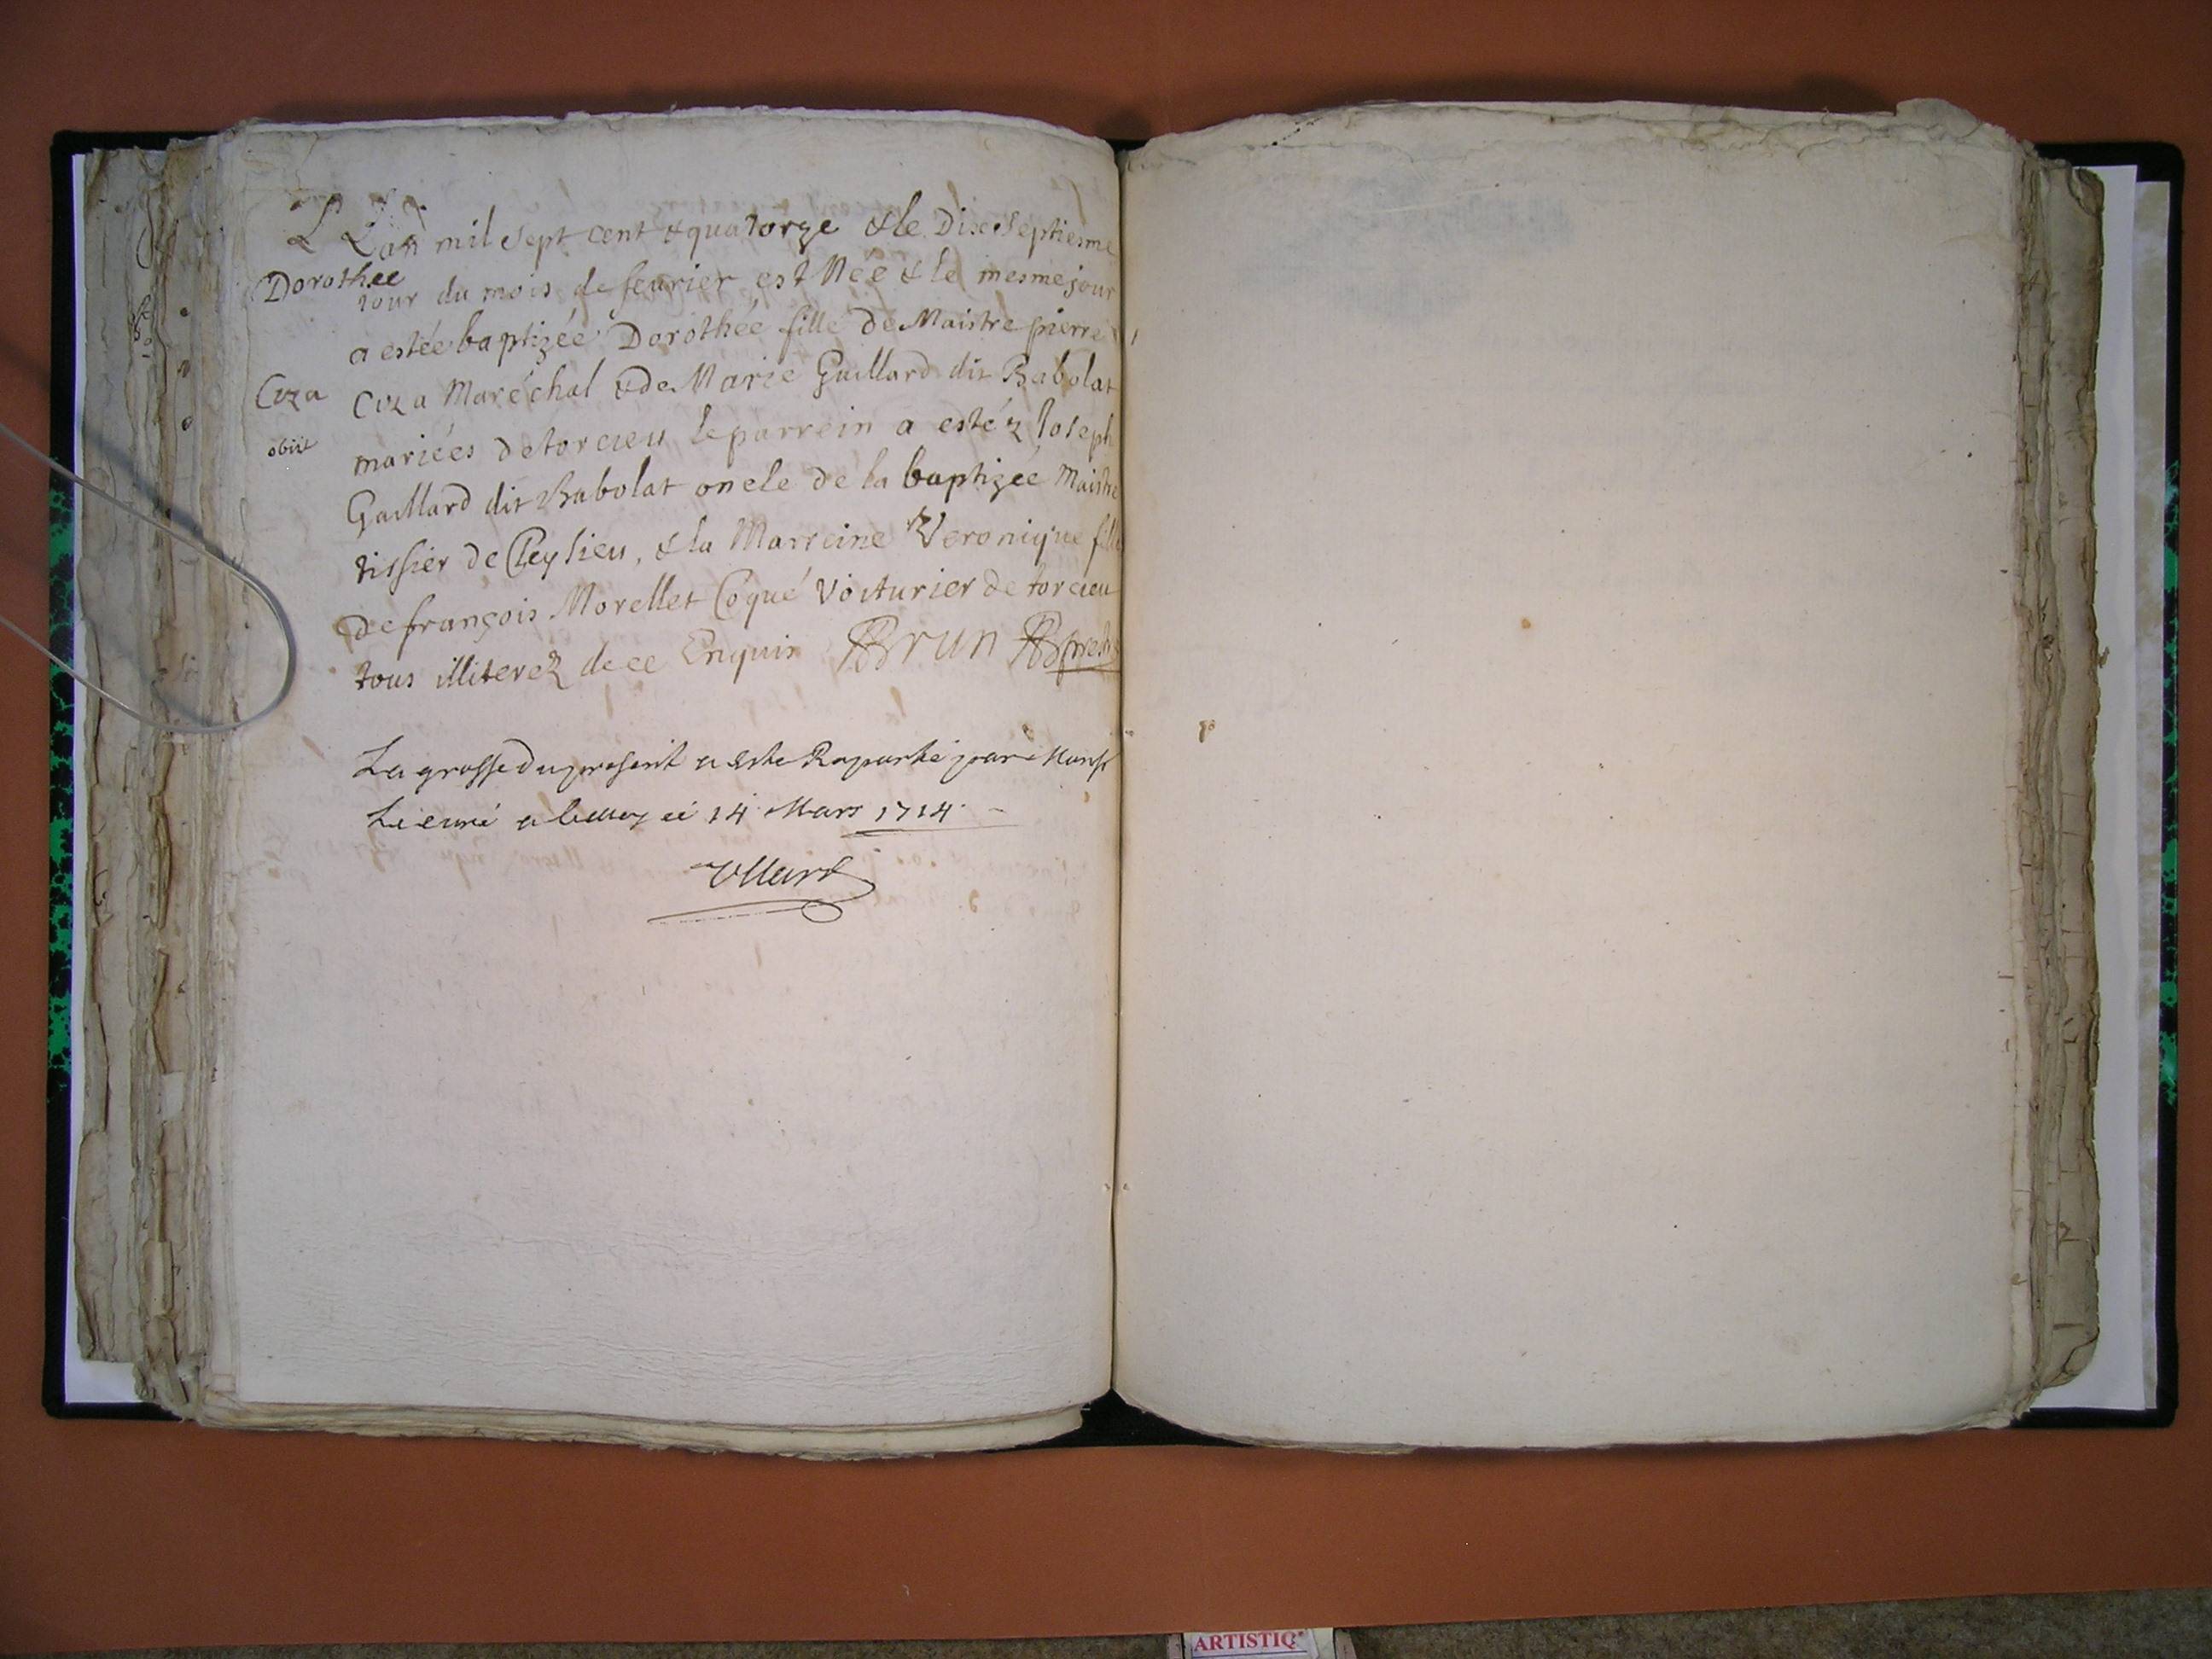 L L'an mil sept cent & quatorze & le Dixseptiesme
Dorothee
iour du mois de feurier est Née & le mesme jour
a estée baptizée Dorothée fille de Maistre pierre
Cuza
Cuza Maréchal & de Marie Gaillard dit Babolat
obiit
mariées de torcieu le parrein a estéz Ioseph
Gaillard dit Babolat oncle de la baptizée Maistre
tissier de Cleysieu, & la Marreine Veronique fille
de françois Morellet Coqué Voiturier de torcieu
tous illiterez de ce Enquis Brun
La grosse du present a este Raporté par Monsr
Le curé a belley ce 14 Mars 1714
ARTISTIQ